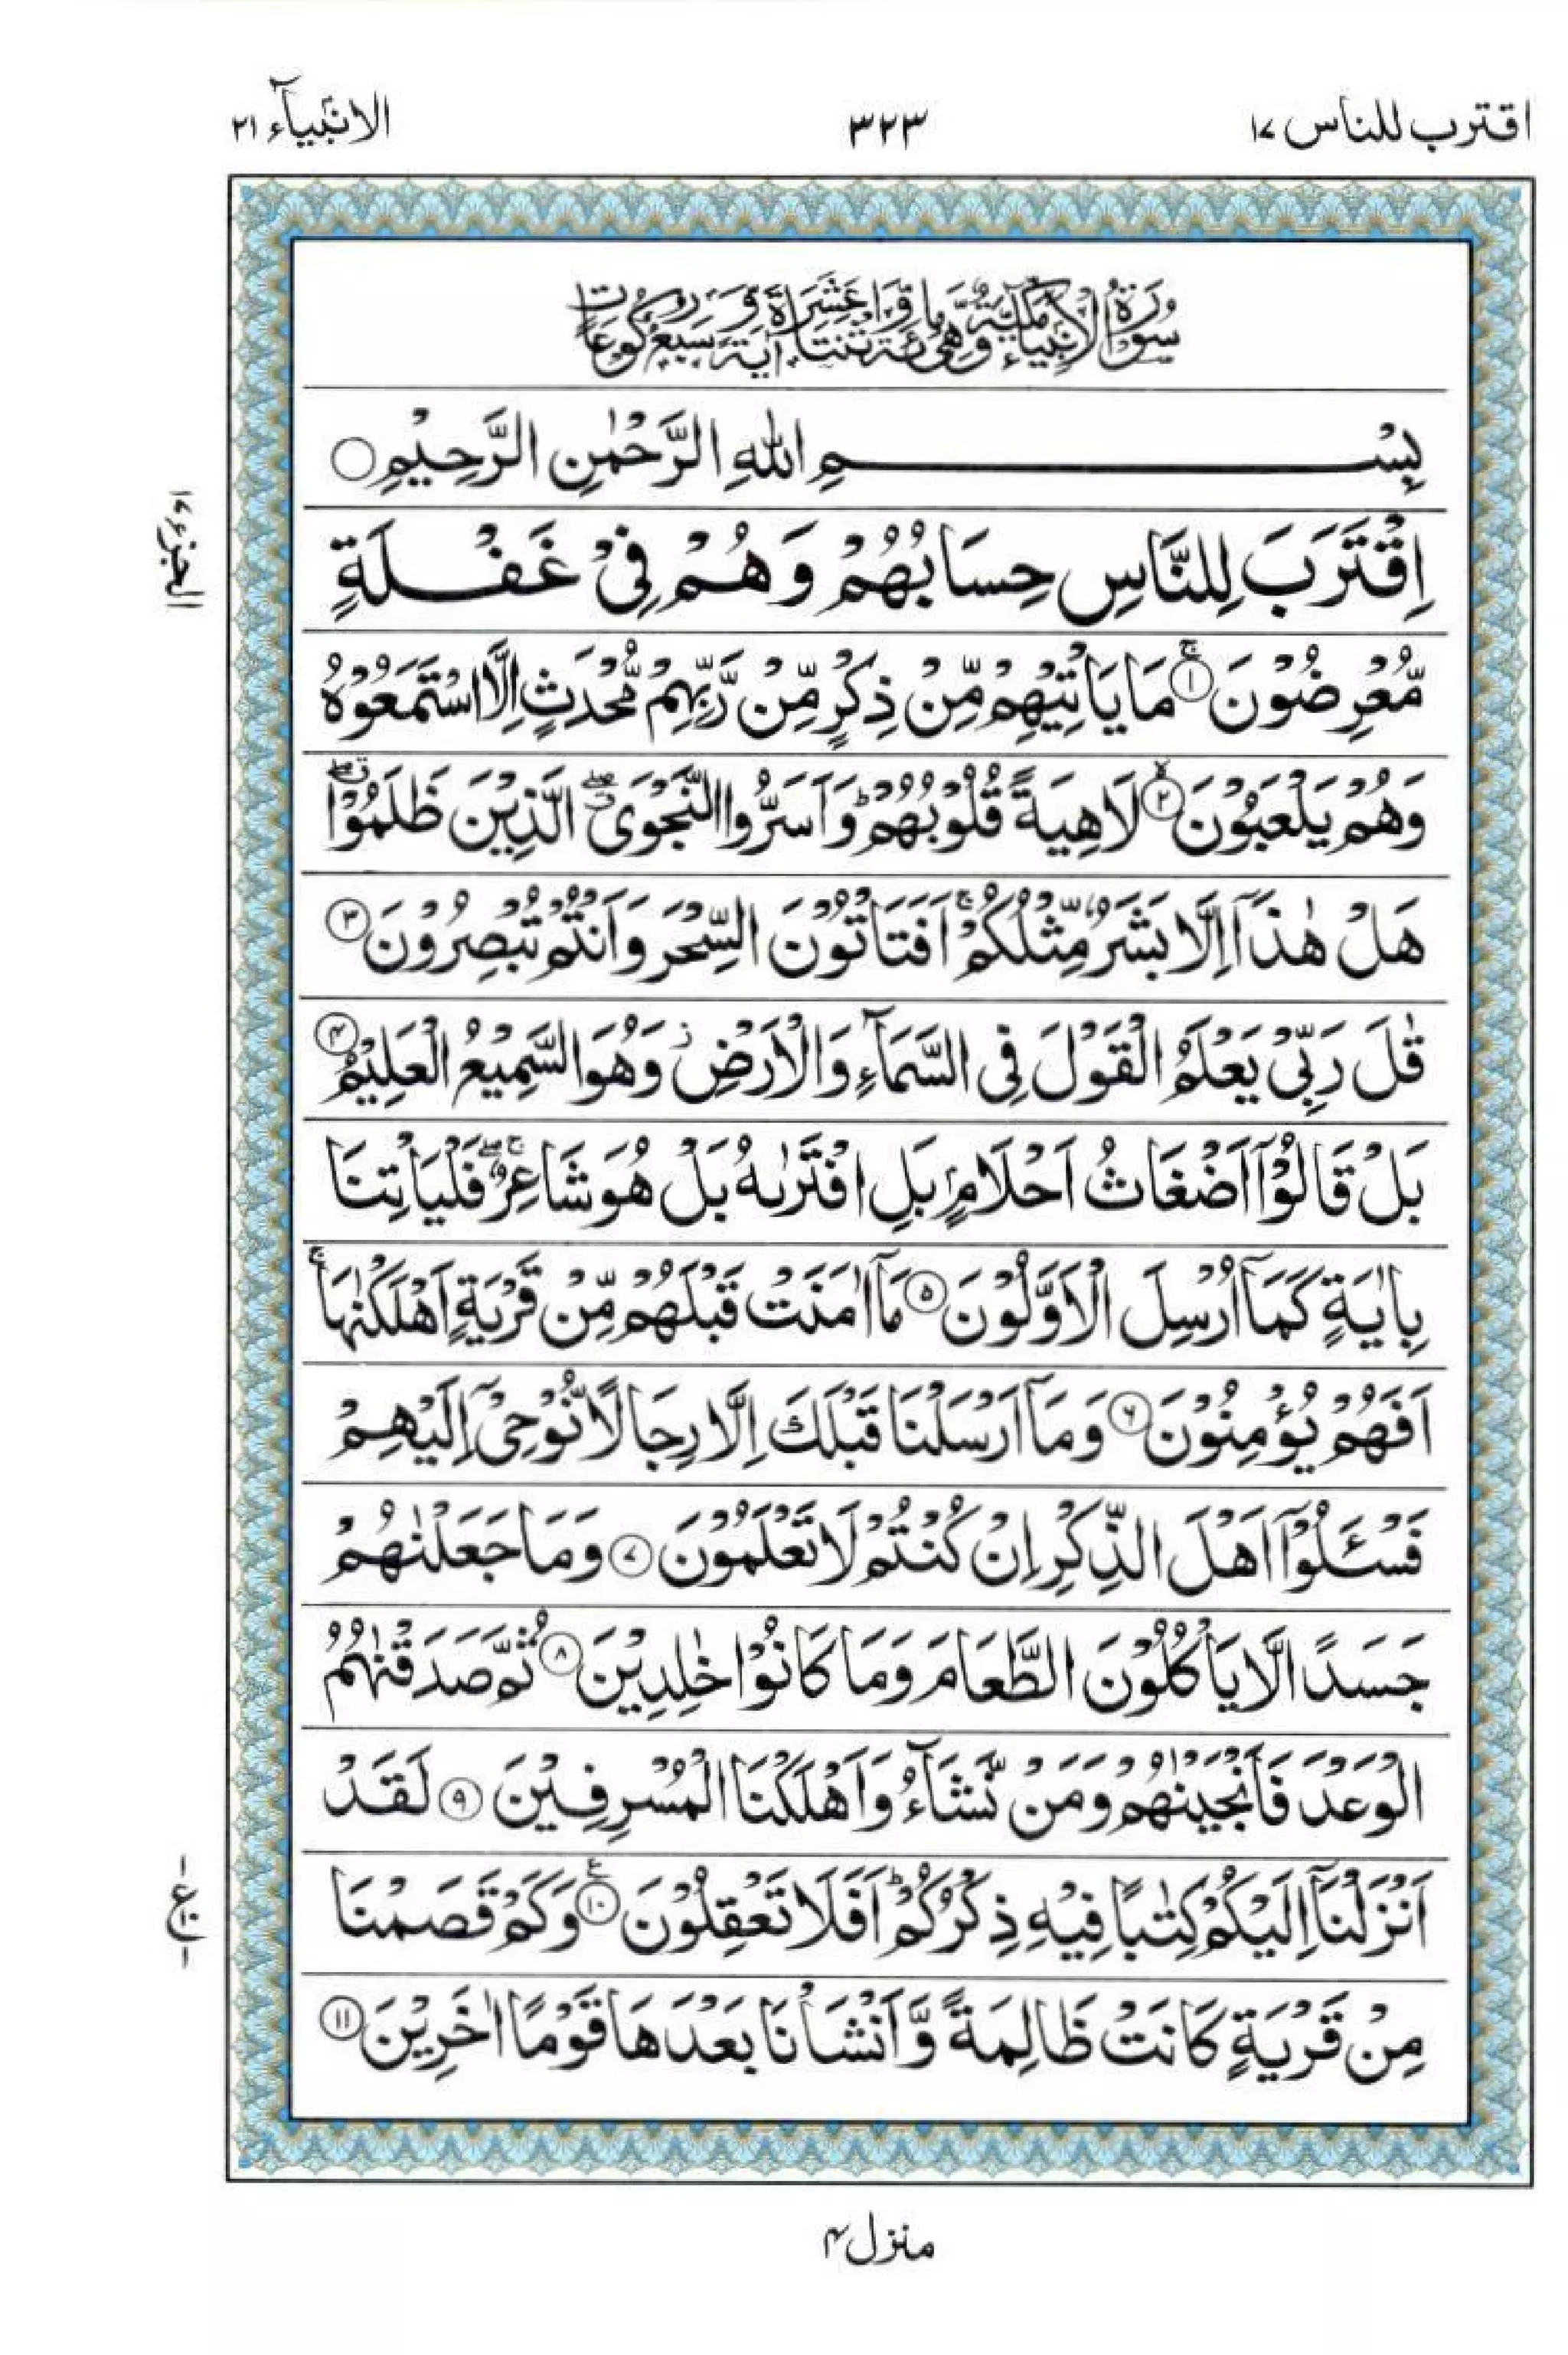 اقترب للناس ١٧
٣٢٣
الانبيآء ٢١
سُوْرَةُ الْاَنْبِيَآءِ مَكِّيَّةٌ وَّهِيَ مِائَةٌ وَّاثْنَتَا عَشْرَةَ اٰيَةً وَّسَبْعُ رُكُوْعَاتٍ
بِسْمِ اللّٰهِ الرَّحْمٰنِ الرَّحِيْمِ ○
اِقْتَرَبَ لِلنَّاسِ حِسَابُهُمْ وَهُمْ فِيْ غَفْلَةٍ
مُّعْرِضُوْنَ ۚ ١ مَا يَاْتِيْهِمْ مِّنْ ذِكْرٍ مِّنْ رَّبِّهِمْ مُّحْدَثٍ اِلَّا اسْتَمَعُوْهُ
وَهُمْ يَلْعَبُوْنَ ۙ ٢ لَاهِيَةً قُلُوْبُهُمْ ؕ وَاَسَرُّوا النَّجْوَى ۖ الَّذِيْنَ ظَلَمُوْا ۖ
هَلْ هٰذَآ اِلَّا بَشَرٌ مِّثْلُكُمْ ۚ اَفَتَاْتُوْنَ السِّحْرَ وَاَنْتُمْ تُبْصِرُوْنَ ٣
قٰلَ رَبِّيْ يَعْلَمُ الْقَوْلَ فِى السَّمَآءِ وَالْاَرْضِ ز وَهُوَ السَّمِيْعُ الْعَلِيْمُ ٤
بَلْ قَالُوْٓا اَضْغَاثُ اَحْلَامٍۭ بَلِ افْتَرٰىهُ بَلْ هُوَ شَاعِرٌ ۖۚ فَلْيَاْتِنَا
بِاٰيَةٍ كَمَآ اُرْسِلَ الْاَوَّلُوْنَ ٥ مَآ اٰمَنَتْ قَبْلَهُمْ مِّنْ قَرْيَةٍ اَهْلَكْنٰهَا ۚ
اَفَهُمْ يُؤْمِنُوْنَ ٦ وَمَآ اَرْسَلْنَا قَبْلَكَ اِلَّا رِجَالًا نُّوْحِيْٓ اِلَيْهِمْ
فَسْئَلُوْٓا اَهْلَ الذِّكْرِ اِنْ كُنْتُمْ لَا تَعْلَمُوْنَ ٧ وَمَا جَعَلْنٰهُمْ
جَسَدًا الَّا يَاْكُلُوْنَ الطَّعَامَ وَمَا كَانُوْا خٰلِدِيْنَ ٨ ثُمَّ صَدَقْنٰهُمُ
الْوَعْدَ فَاَنْجَيْنٰهُمْ وَمَنْ نَّشَآءُ وَاَهْلَكْنَا الْمُسْرِفِيْنَ ٩ لَقَدْ
اَنْزَلْنَآ اِلَيْكُمْ كِتٰبًا فِيْهِ ذِكْرُكُمْ ؕ اَفَلَا تَعْقِلُوْنَ ١٠ ع وَكَمْ قَصَمْنَا
مِنْ قَرْيَةٍ كَانَتْ ظَالِمَةً وَّاَنْشَاْنَا بَعْدَهَا قَوْمًا اٰخَرِيْنَ ١١
الجزء ١٧
منزل ٤